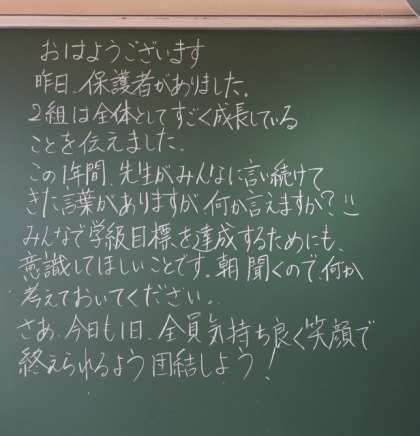 おはようございます
昨日、保護者がありました。
2組は全体としてすごく成長している
ことを伝えました。
この1年間、先生がみんなに言い続けて
きた言葉がありますが、何か言えますか?
みんなで学級目標を達成するためにも、
意識してほしいことです。朝聞くので、何か
考えておいてください。
さあ、今日も1日、全員気持ち良く笑顔で
終えられるよう団結しよう!